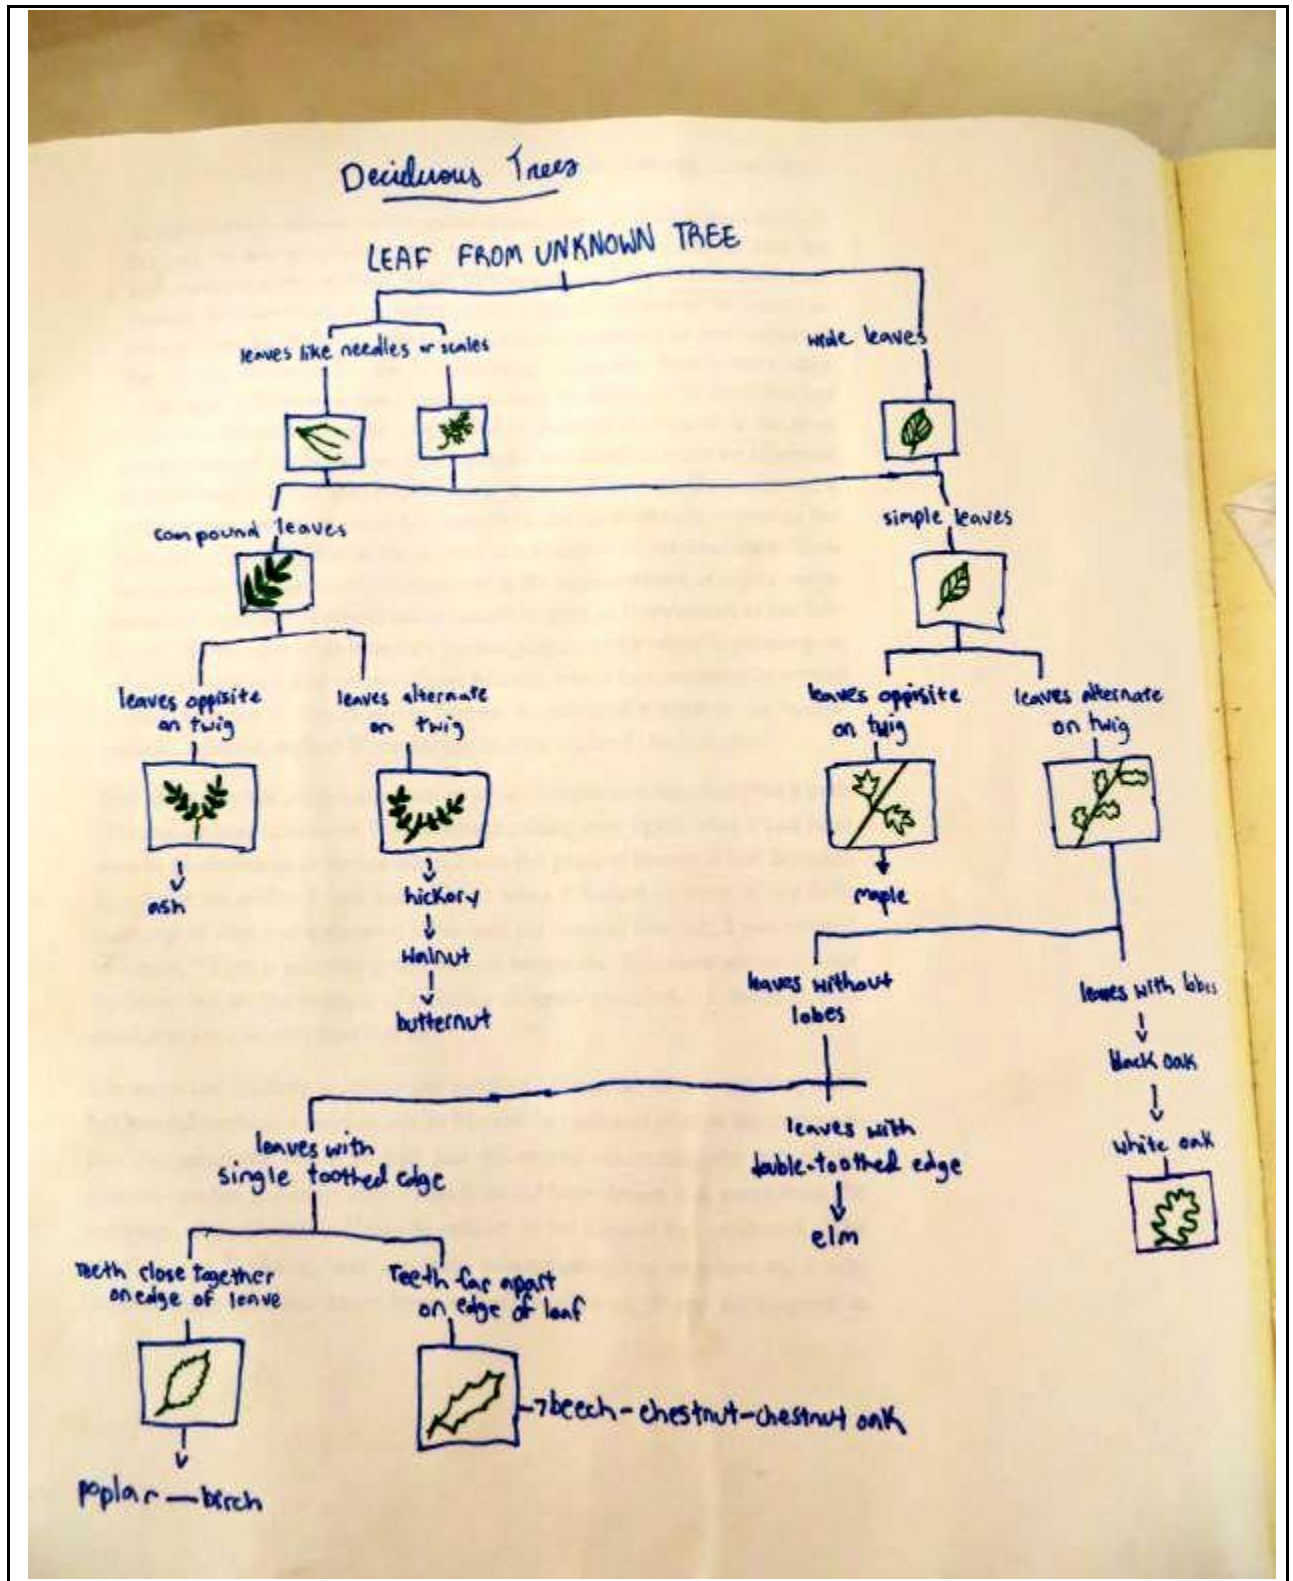 Deciduous Trees
LEAF FROM UNKNOWN TREE
leaves like needles or scales
wide leaves
compound leaves
simple leaves
leaves oppisite
on twig
leaves alternate
on twig
leaves oppisite
on twig
leaves alternate
on twig
ash
hickory
walnut
butternut
maple
leaves without
lobes
leaves with lobes
black oak
white oak
leaves with
single toothed edge
leaves with
double-toothed edge
elm
Teeth close together
on edge of leave
Teeth far apart
on edge of leaf
beech - chestnut - chestnut oak
poplar — birch